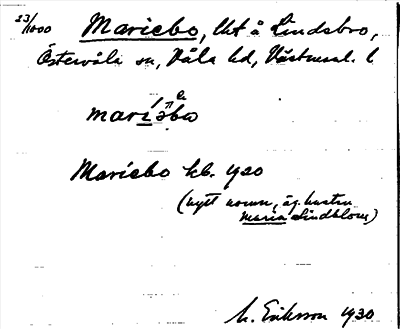 23/1000 Mariebo, lht å Lindsbro,
Östervåla sn, Våla hd, Västmanl. l
Mariebo kb. 1920
(nytt namn, äg. hustru
Maria Lindblom)
M. Eriksson 1930